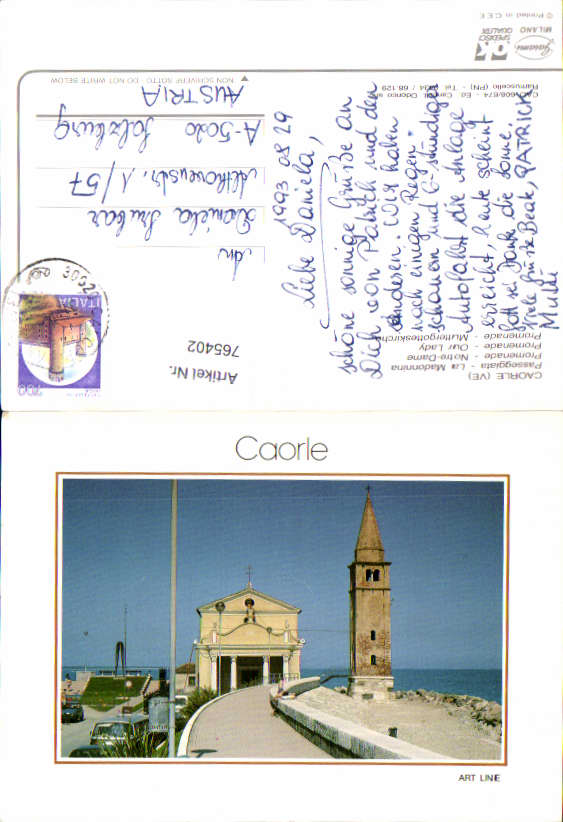 Caorle
ART LINE
CAORLE (VE)
Passeggiata - La Madonnina
Promenade - Notre-Dame
Promenade - Our Lady
Promenade - Muttergotteskirche
Artikel Nr.
765402
1993 08 29
Liebe Daniela,
schöne sonnige Grüße an
Dich von Patrick und den
anderen. Wir haben
nach einigen Regen-
schauern und 6-stündiger
Autofahrt die Anlage
erreicht, heute scheint
Gott sei Dank die Sonne.
Viele Grüße Beate, PATRICK
Mutti
ITALIA
700
30021
An
Daniela
1/57
A-5020 Salzburg
AUSTRIA
NON SCRIVERE SOTTO - DO NOT WRITE BELOW
Ramuscello (PN) - Tel.
MILANO
OK
SPEDISCI
QUALITÀ
© Printed in C.E.E.